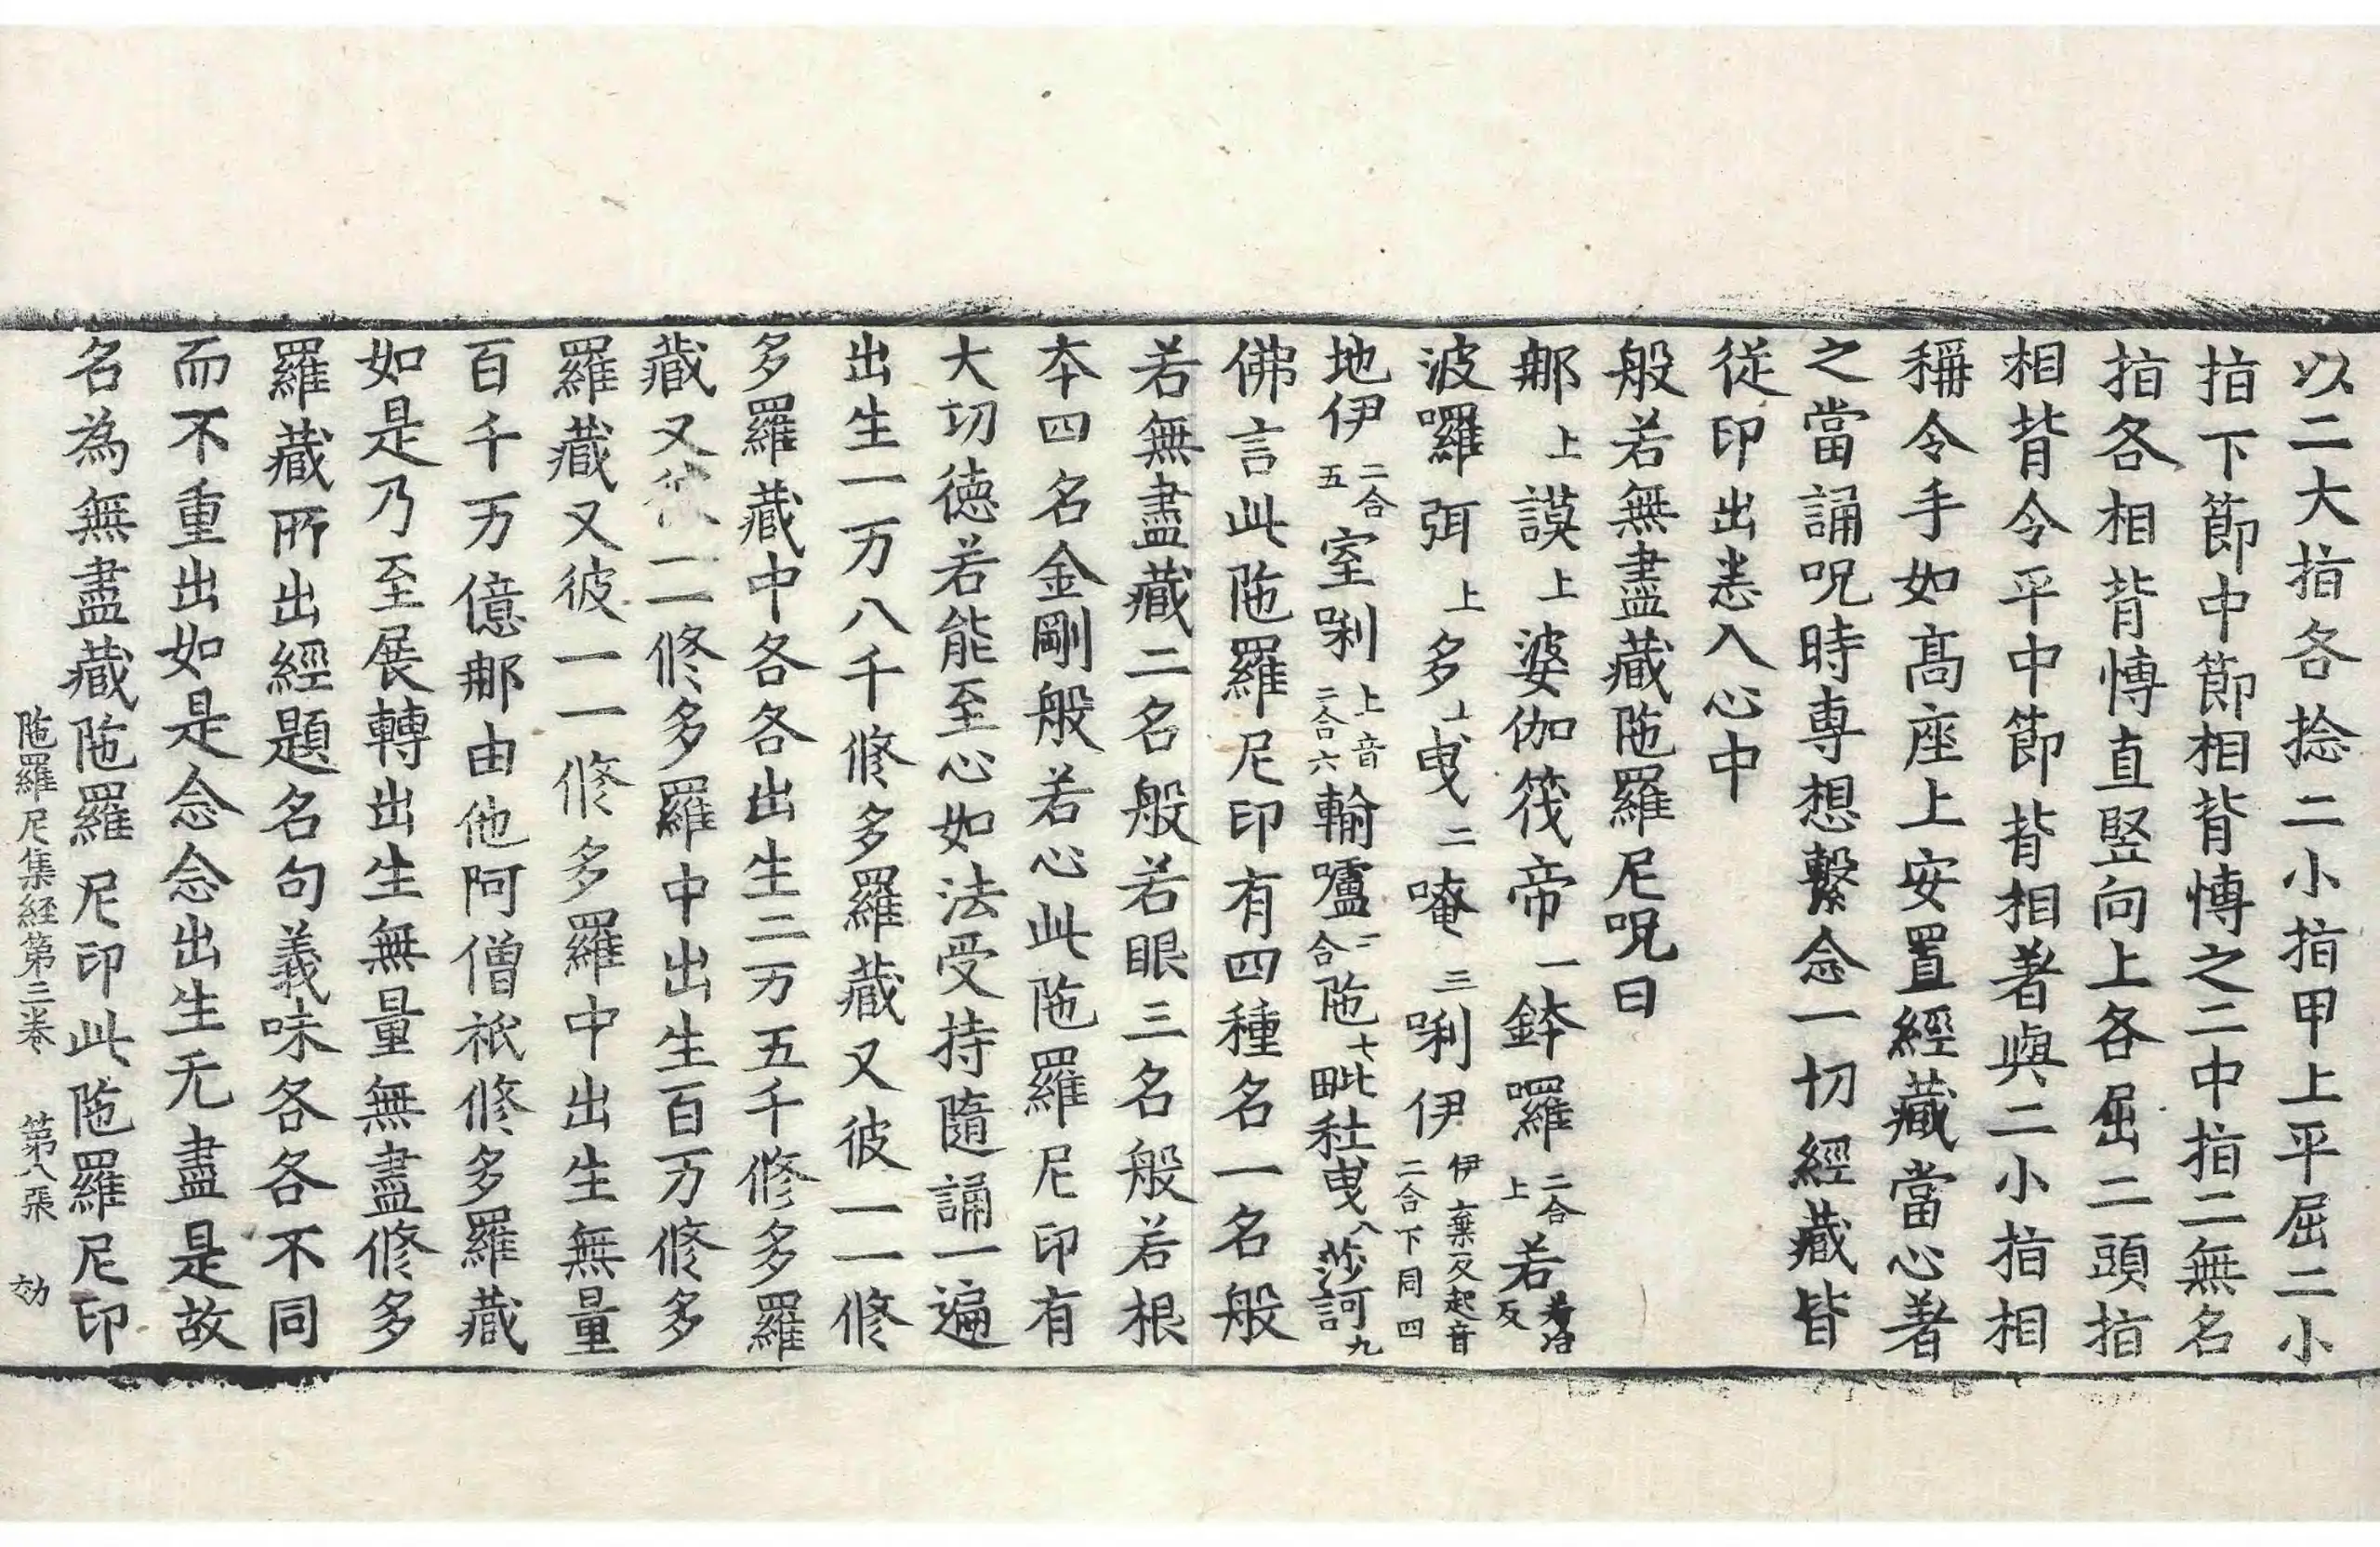 以二大指各捻二小指甲上平屈二小
指下節中節相背愽之二中指二無名
指各相背愽直竪向上各屈二頭指
相背令平中節背相著與二小指相
稱令手如髙座上安置經藏當心著
之當誦呪時専想繫念一切經藏皆
従印出悉入心中
般若無盡藏陁羅尼呪曰
那上謨上婆伽筏帝一鉢囉二合上若反
波囉弭上多上曵二唵三唎伊伊棄反起音二合下同四
地伊二合五室唎上音二合六輸嚧二合陁七毗社曵八莎訶九
佛言此陁羅尼印有四種名一名般
若無盡藏二名般若眼三名般若根
本四名金剛般若心此陁羅尼印有
大切徳若能至心如法受持隨誦一遍
出生一万八千修多羅藏又彼一一修
多羅藏中各各出生二万五千修多羅
藏又彼一一修多羅中出生百万修多
羅藏又彼一一修多羅中出生無量
百千万億那由他阿僧祇修多羅藏
如是乃至展轉出生無量無盡修多
羅藏所出經題名句義味各各不同
而不重出如是念念出生无盡是故
名為無盡藏陁羅尼印此陁羅尼印
陁羅尼集経第三卷 第八張 効